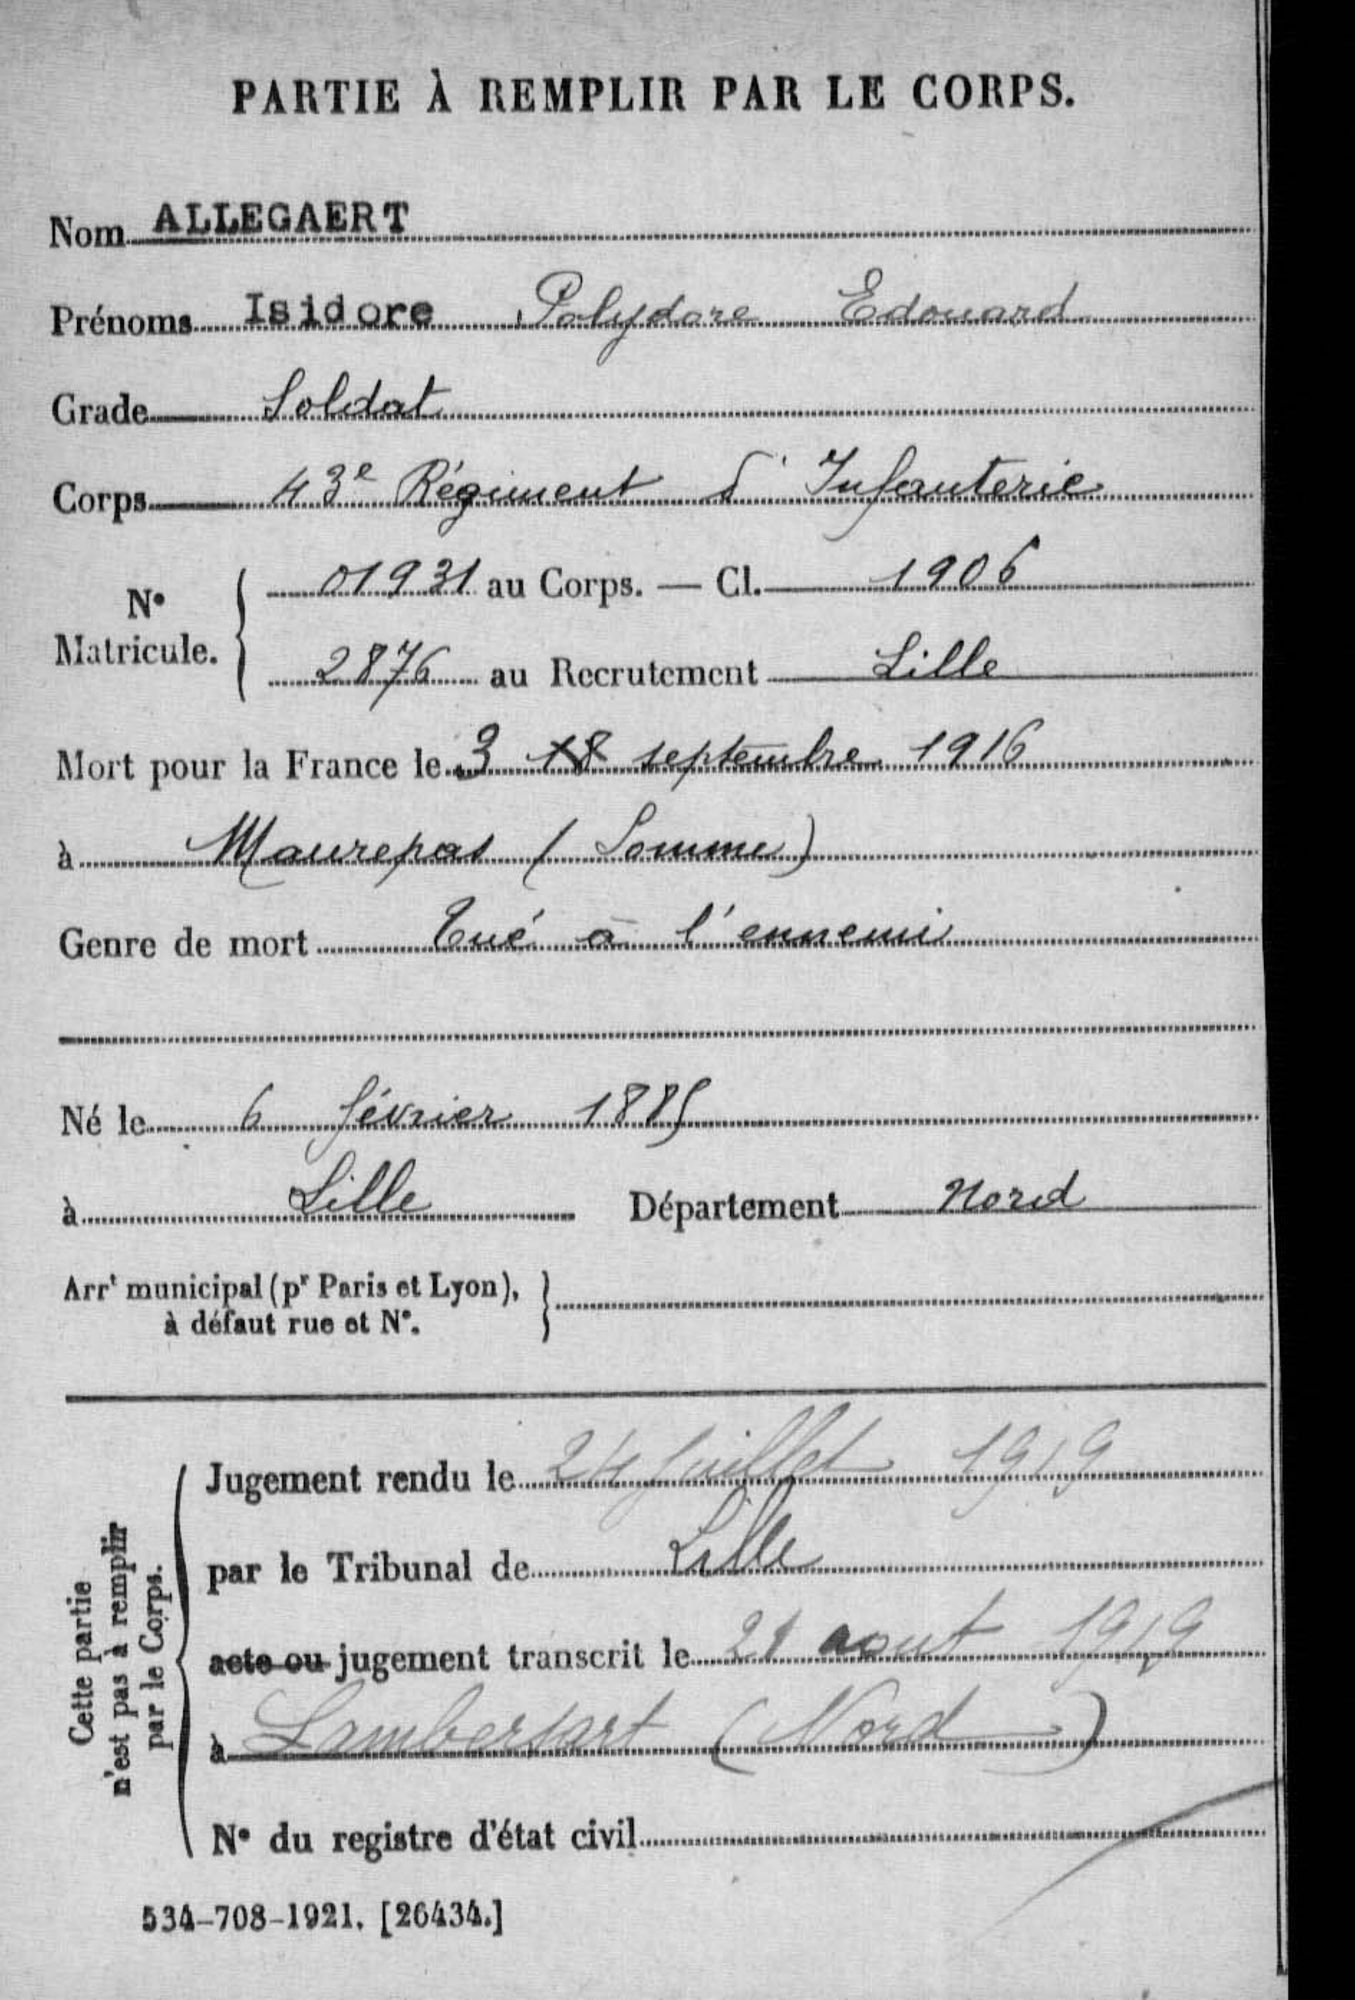 PARTIE À REMPLIR PAR LE CORPS.
Nom ALLEGAERT
Prénoms Isidore Polydore Edouard
Grade Soldat
Corps 43e Régiment d'Infanterie
No Matricule. { 01931 au Corps. — Cl. 1906
2876 au Recrutement Lille
Mort pour la France le 3 18 septembre 1916
à Maurepas (Somme)
Genre de mort Tué à l'ennemi
Né le 6 février 1885
à Lille Département Nord
Arrt municipal (pr Paris et Lyon),
à défaut rue et No.
Cette partie
n'est pas à remplir
par le Corps.
Jugement rendu le 24 Juillet 1919
par le Tribunal de Lille
acte ou jugement transcrit le 21 aout 1919
à Lambersart (Nord)
No du registre d'état civil
534-708-1921. [26434.]